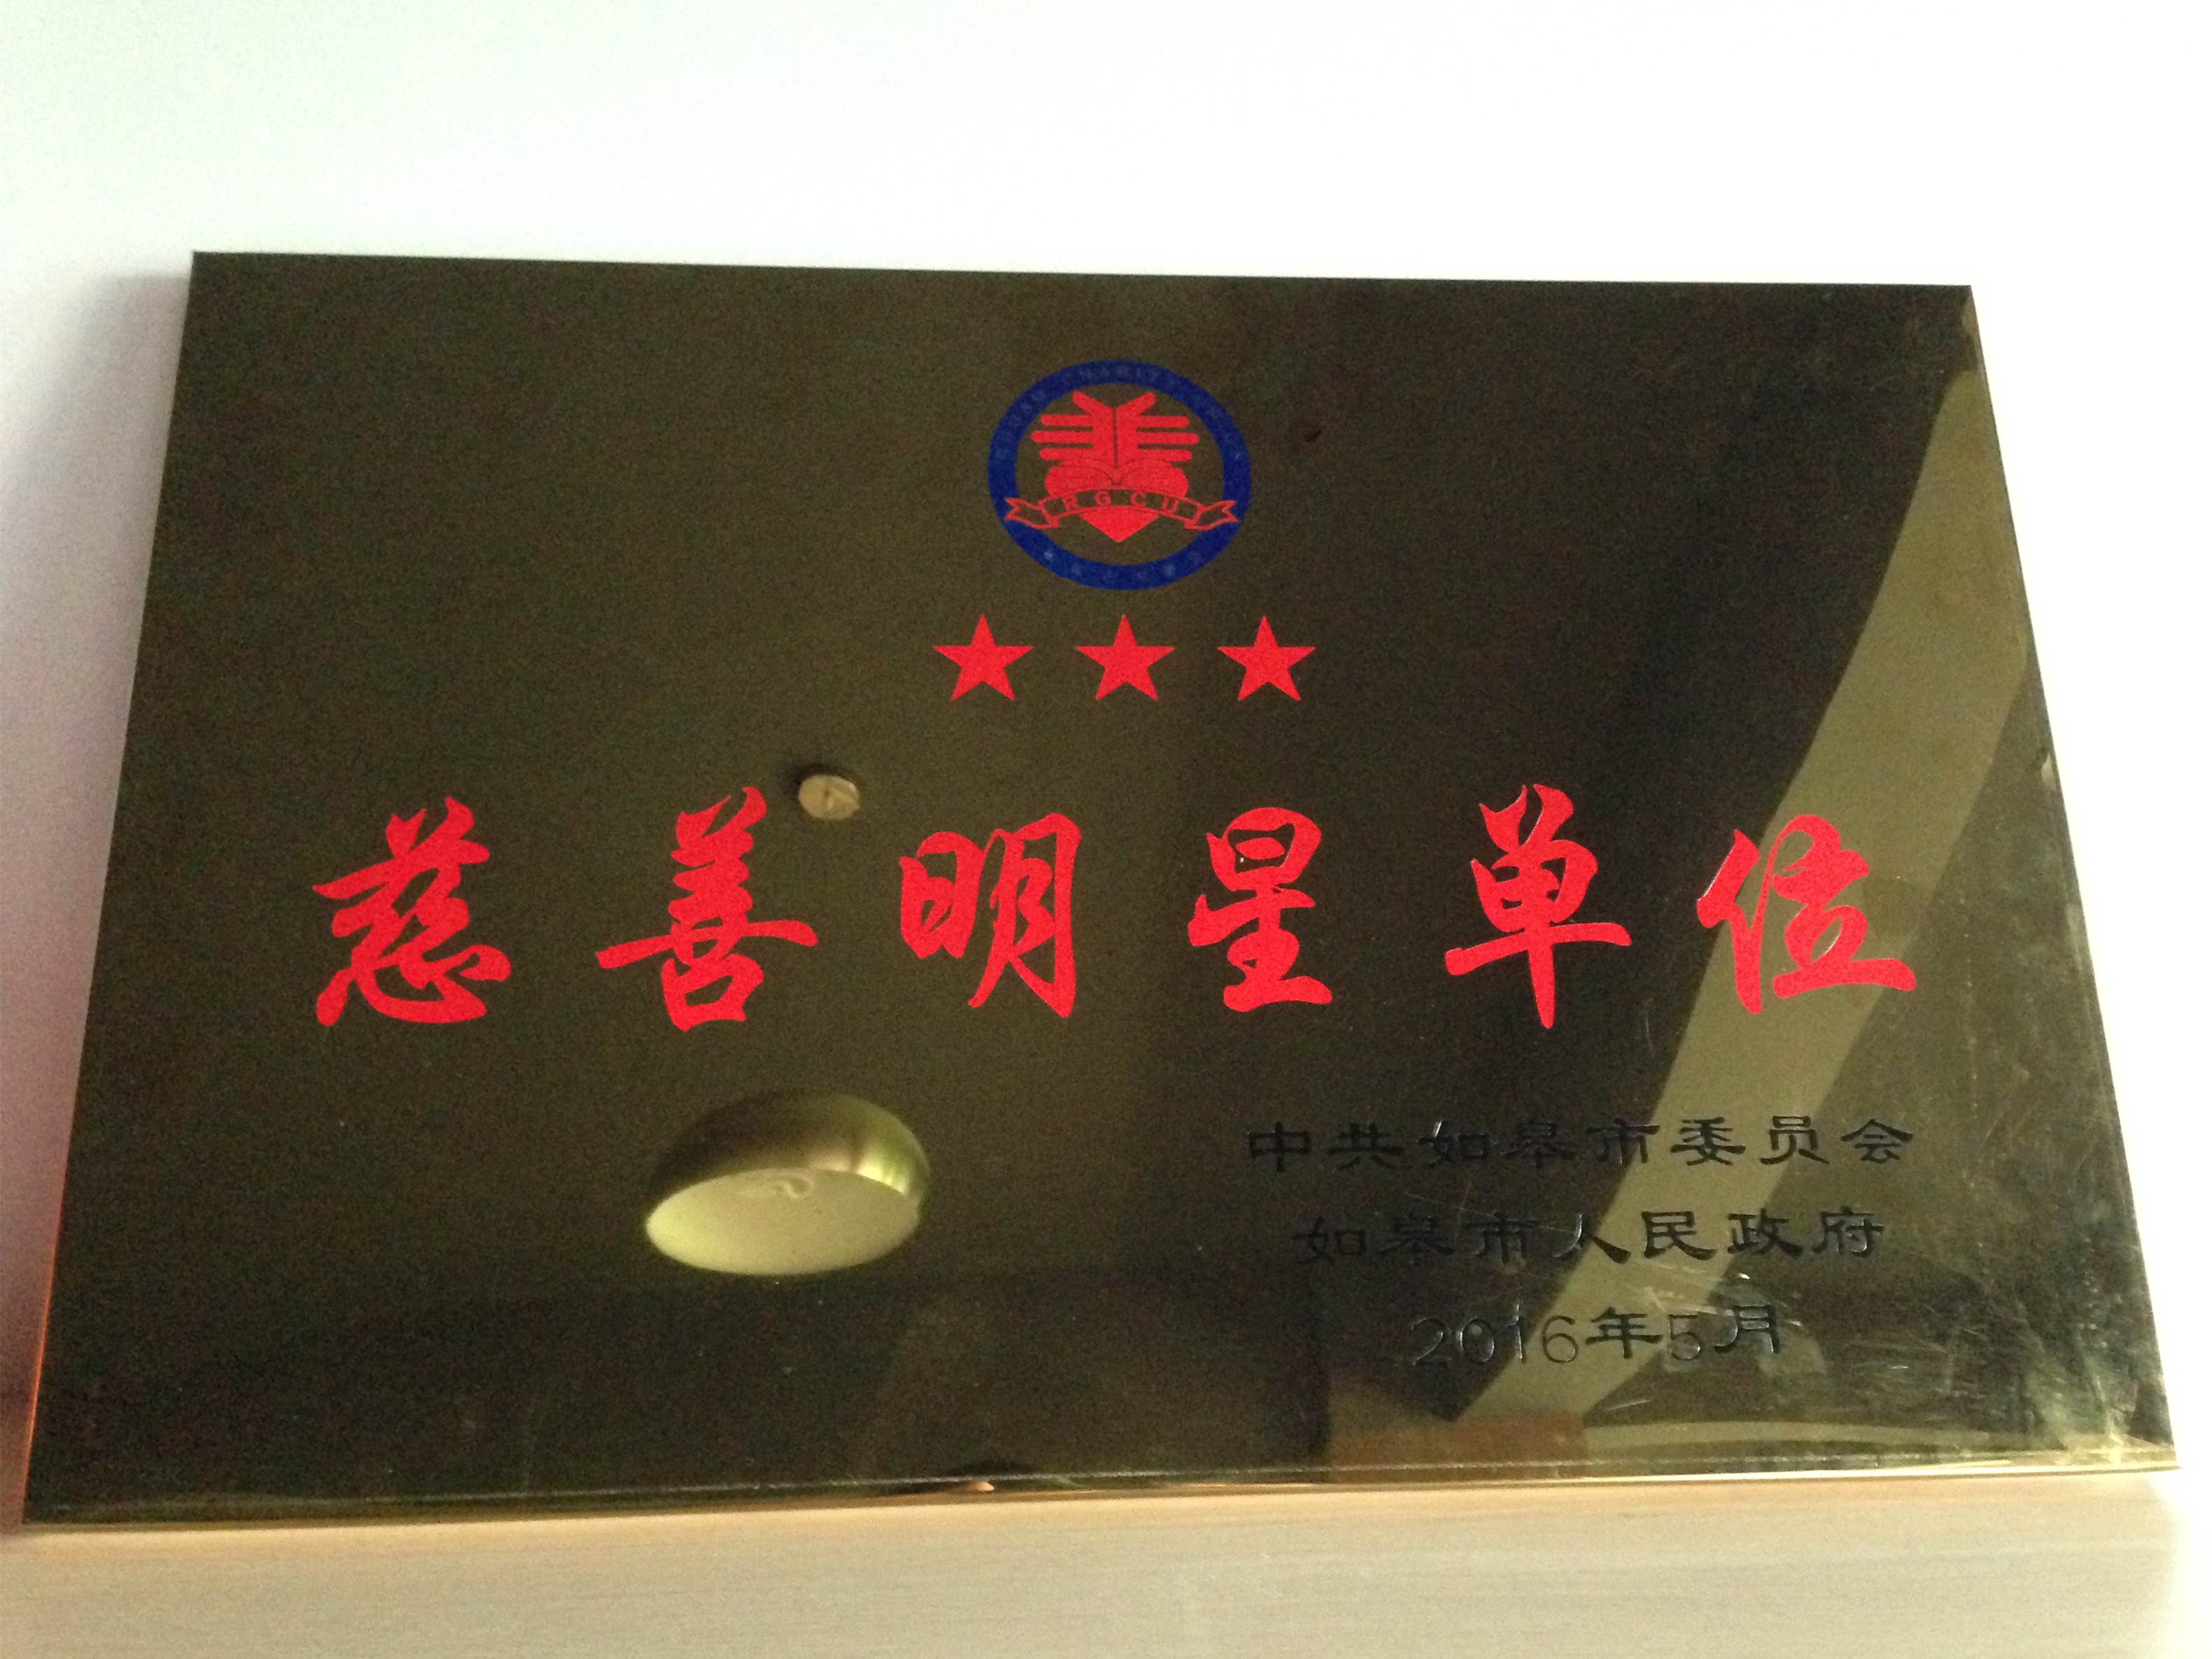 CHARITY
RGCU
慈善明星单位
中共如皋市委员会
如皋市人民政府
2016年5月